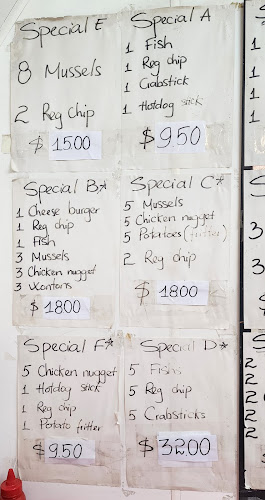 Special E
8 Mussels
2 Reg Chip
$ 15.00
Special A
1 Fish
1 Reg chip
1 Crabstick
1 Hotdog stick
$ 9.50
Special B*
1 Cheese burger
1 Reg chip
1 Fish
3 Mussels
3 Chicken nugget
3 Wontons
$ 18.00
Special C*
5 Mussels
5 Chicken nugget
5 Potatoes (fritter)
2 Reg Chip
$ 18.00
Special F*
5 Chicken nugget
1 Hotdog stick
1 Reg chip
1 Potato fritter
$ 9.50
Special D*
5 Fish
5 Reg chip
5 Crabsticks
$ 32.00